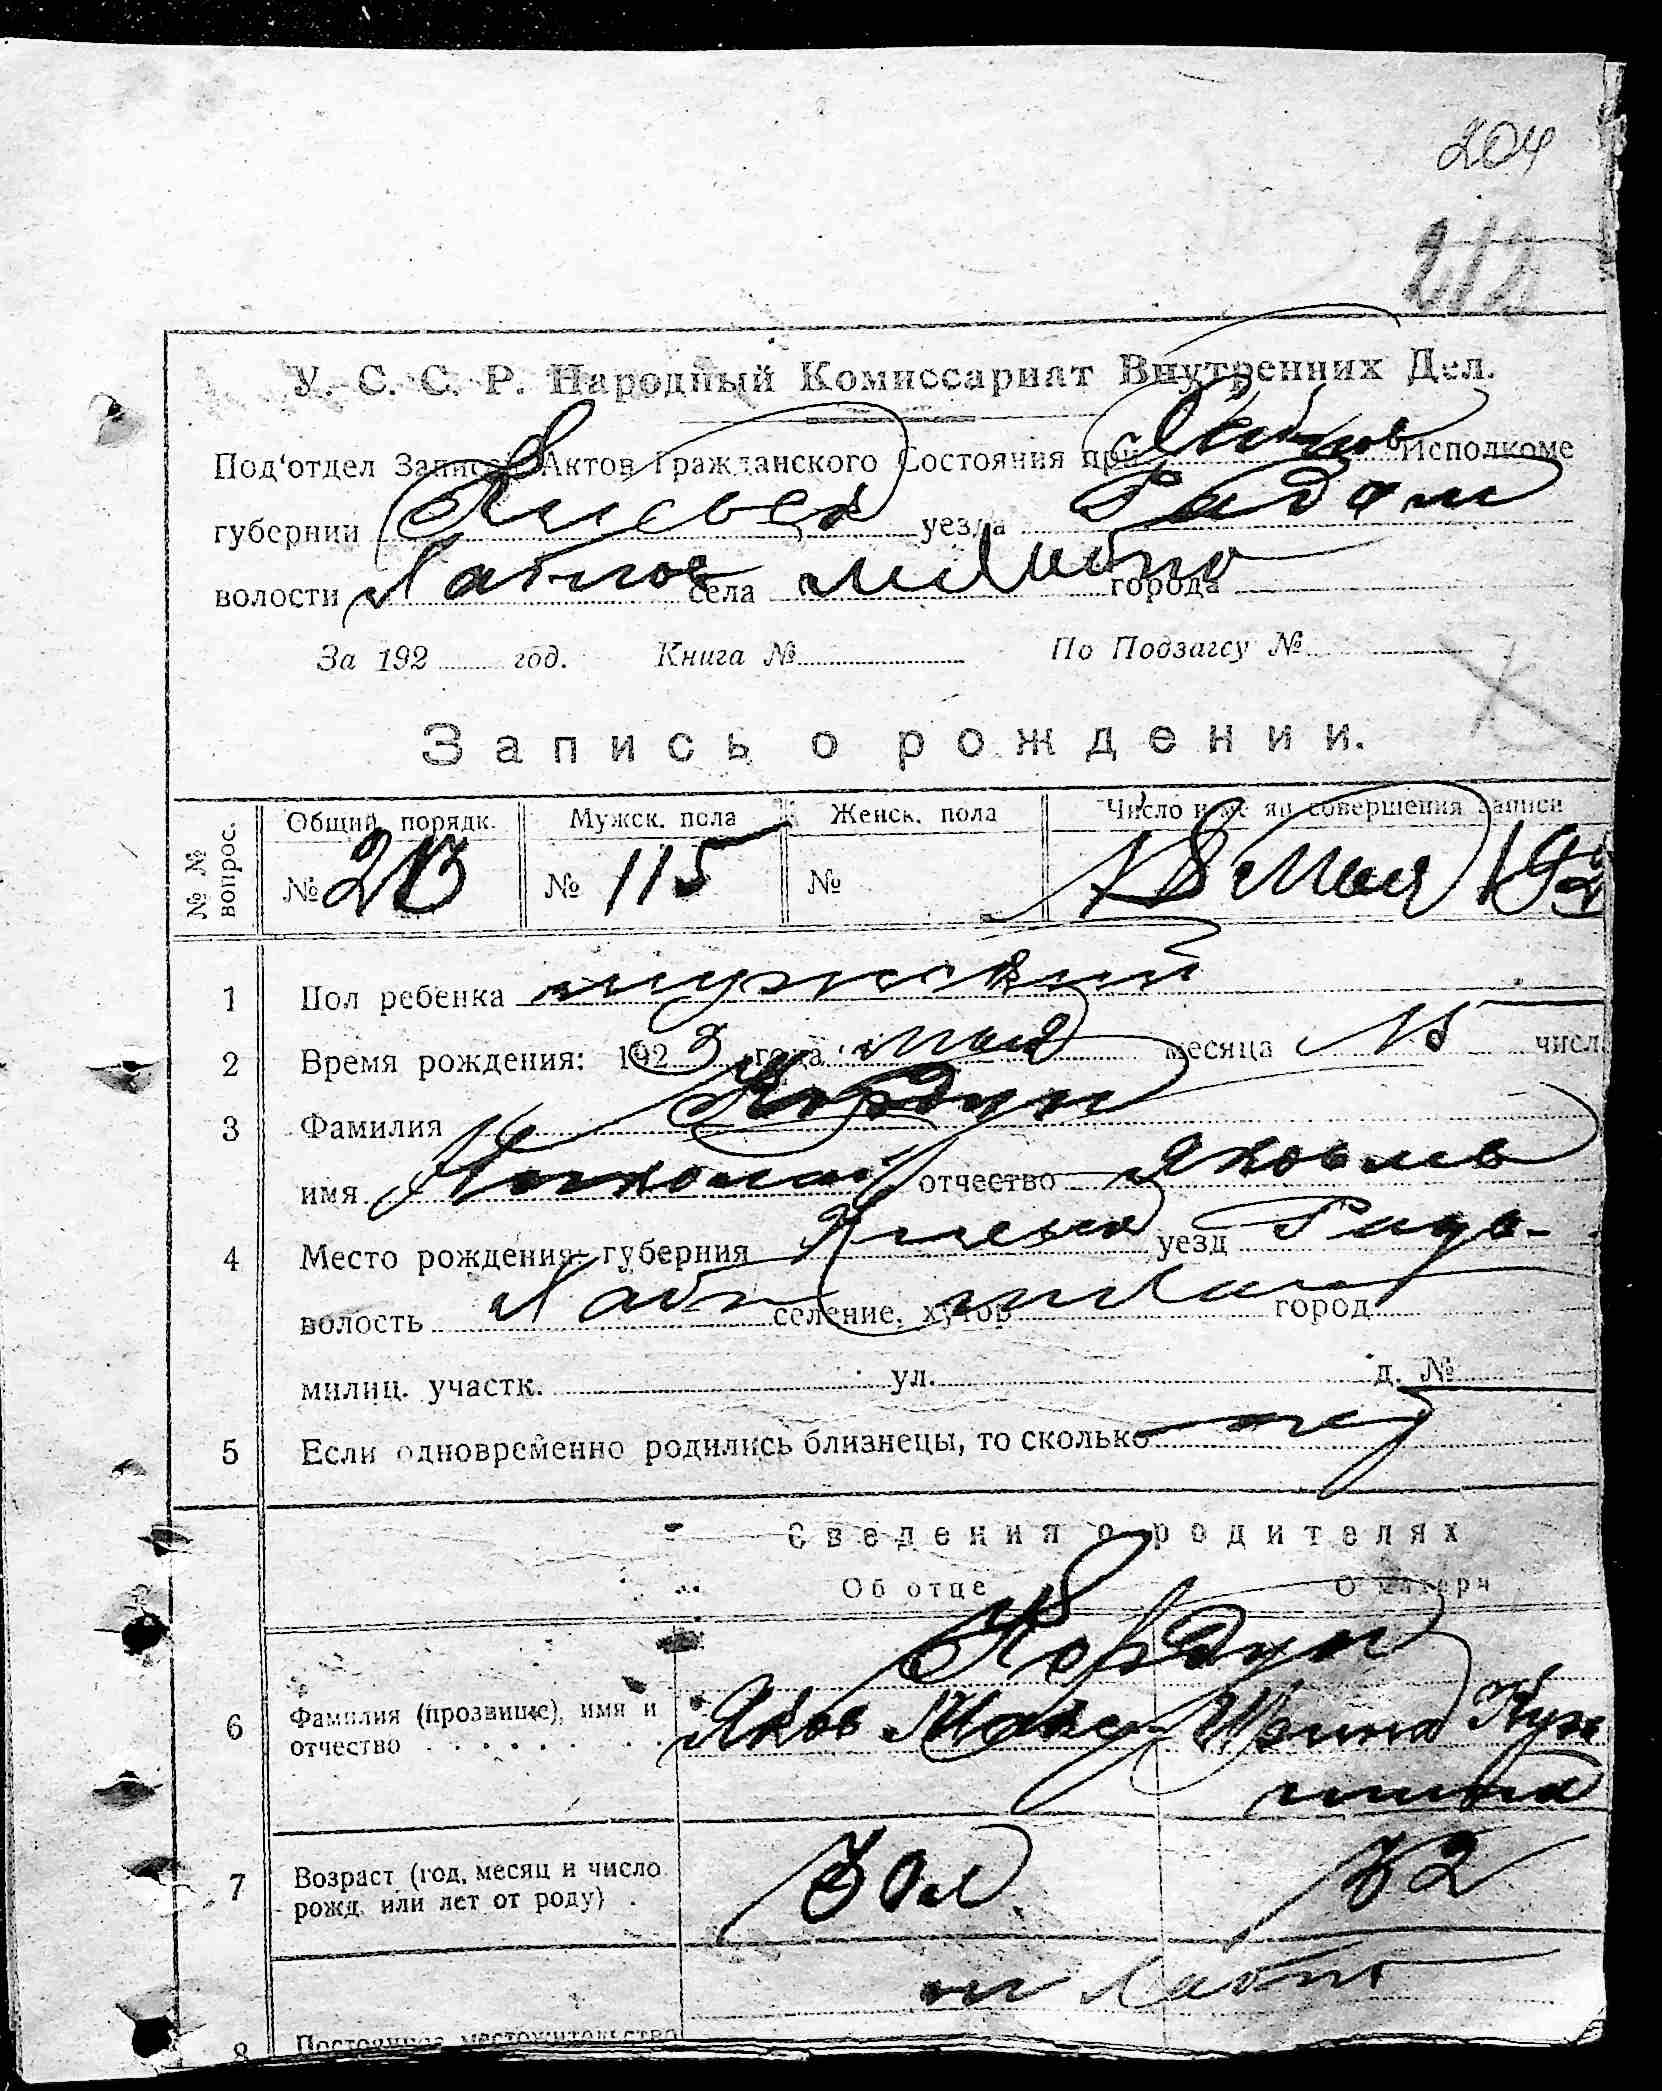 204
212
У. С. С. Р. Народный Комиссариат Внутренних Дел.
Под'отдел Записей Актов Гражданского Состояния при Исполкоме
губернии Киевск уезда Радом
волости села м города
За 192 год. Книга № По Подзагсу №
Запись о рождении.
№ № вопрос. Общий порядк. Мужск. пола Женск. пола Число и месяц совершения записи
№ № 115 № 18 Мая 192
1 Пол ребенка мужский
2 Время рождения: 1923 года мая месяца 15 числ
3 Фамилия Кордун
имя Николай отчество Яковлев
4 Место рождения: губерния Киевск уезд Радо-
волость селение, хутор город
милиц. участк. ул. д. №
5 Если одновременно родились близнецы, то сколько нет
Сведения о родителях
Об отце О матери
Кордун
6 Фамилия (прозвище), имя и отчество Яков Ирина
7 Возраст (год, месяц и число рожд. или лет от роду) 30 л 32
8 Постоянное местожительство